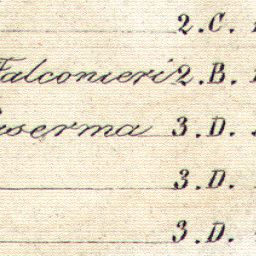 2.C.
Falconieri 2.B.
aserma 3.D.
3.D.
3.D.